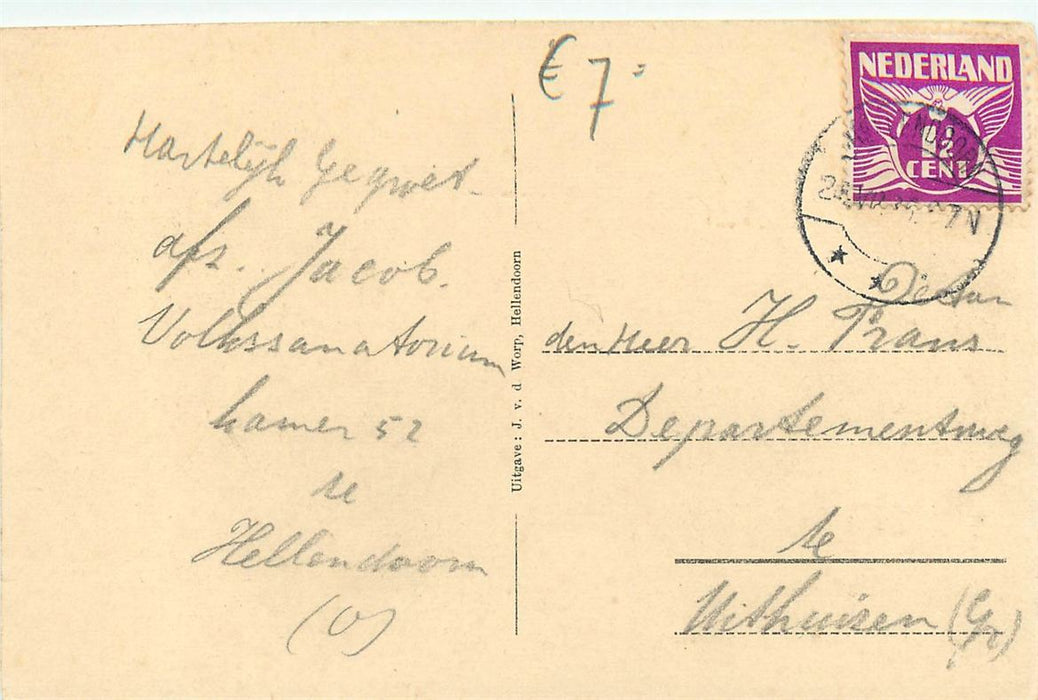 € 7=
NEDERLAND
1½
CENT
HELLENDOORN
Hartelijk Gegroet.
afz. Jacob.
Volkssanatorium
kamer 52
te
Hellendoorn
(O)
Uitgave: J. v. d Worp, Hellendoorn
den Heer H. Prans
Departementweg
te
Uithuizen (Gr)